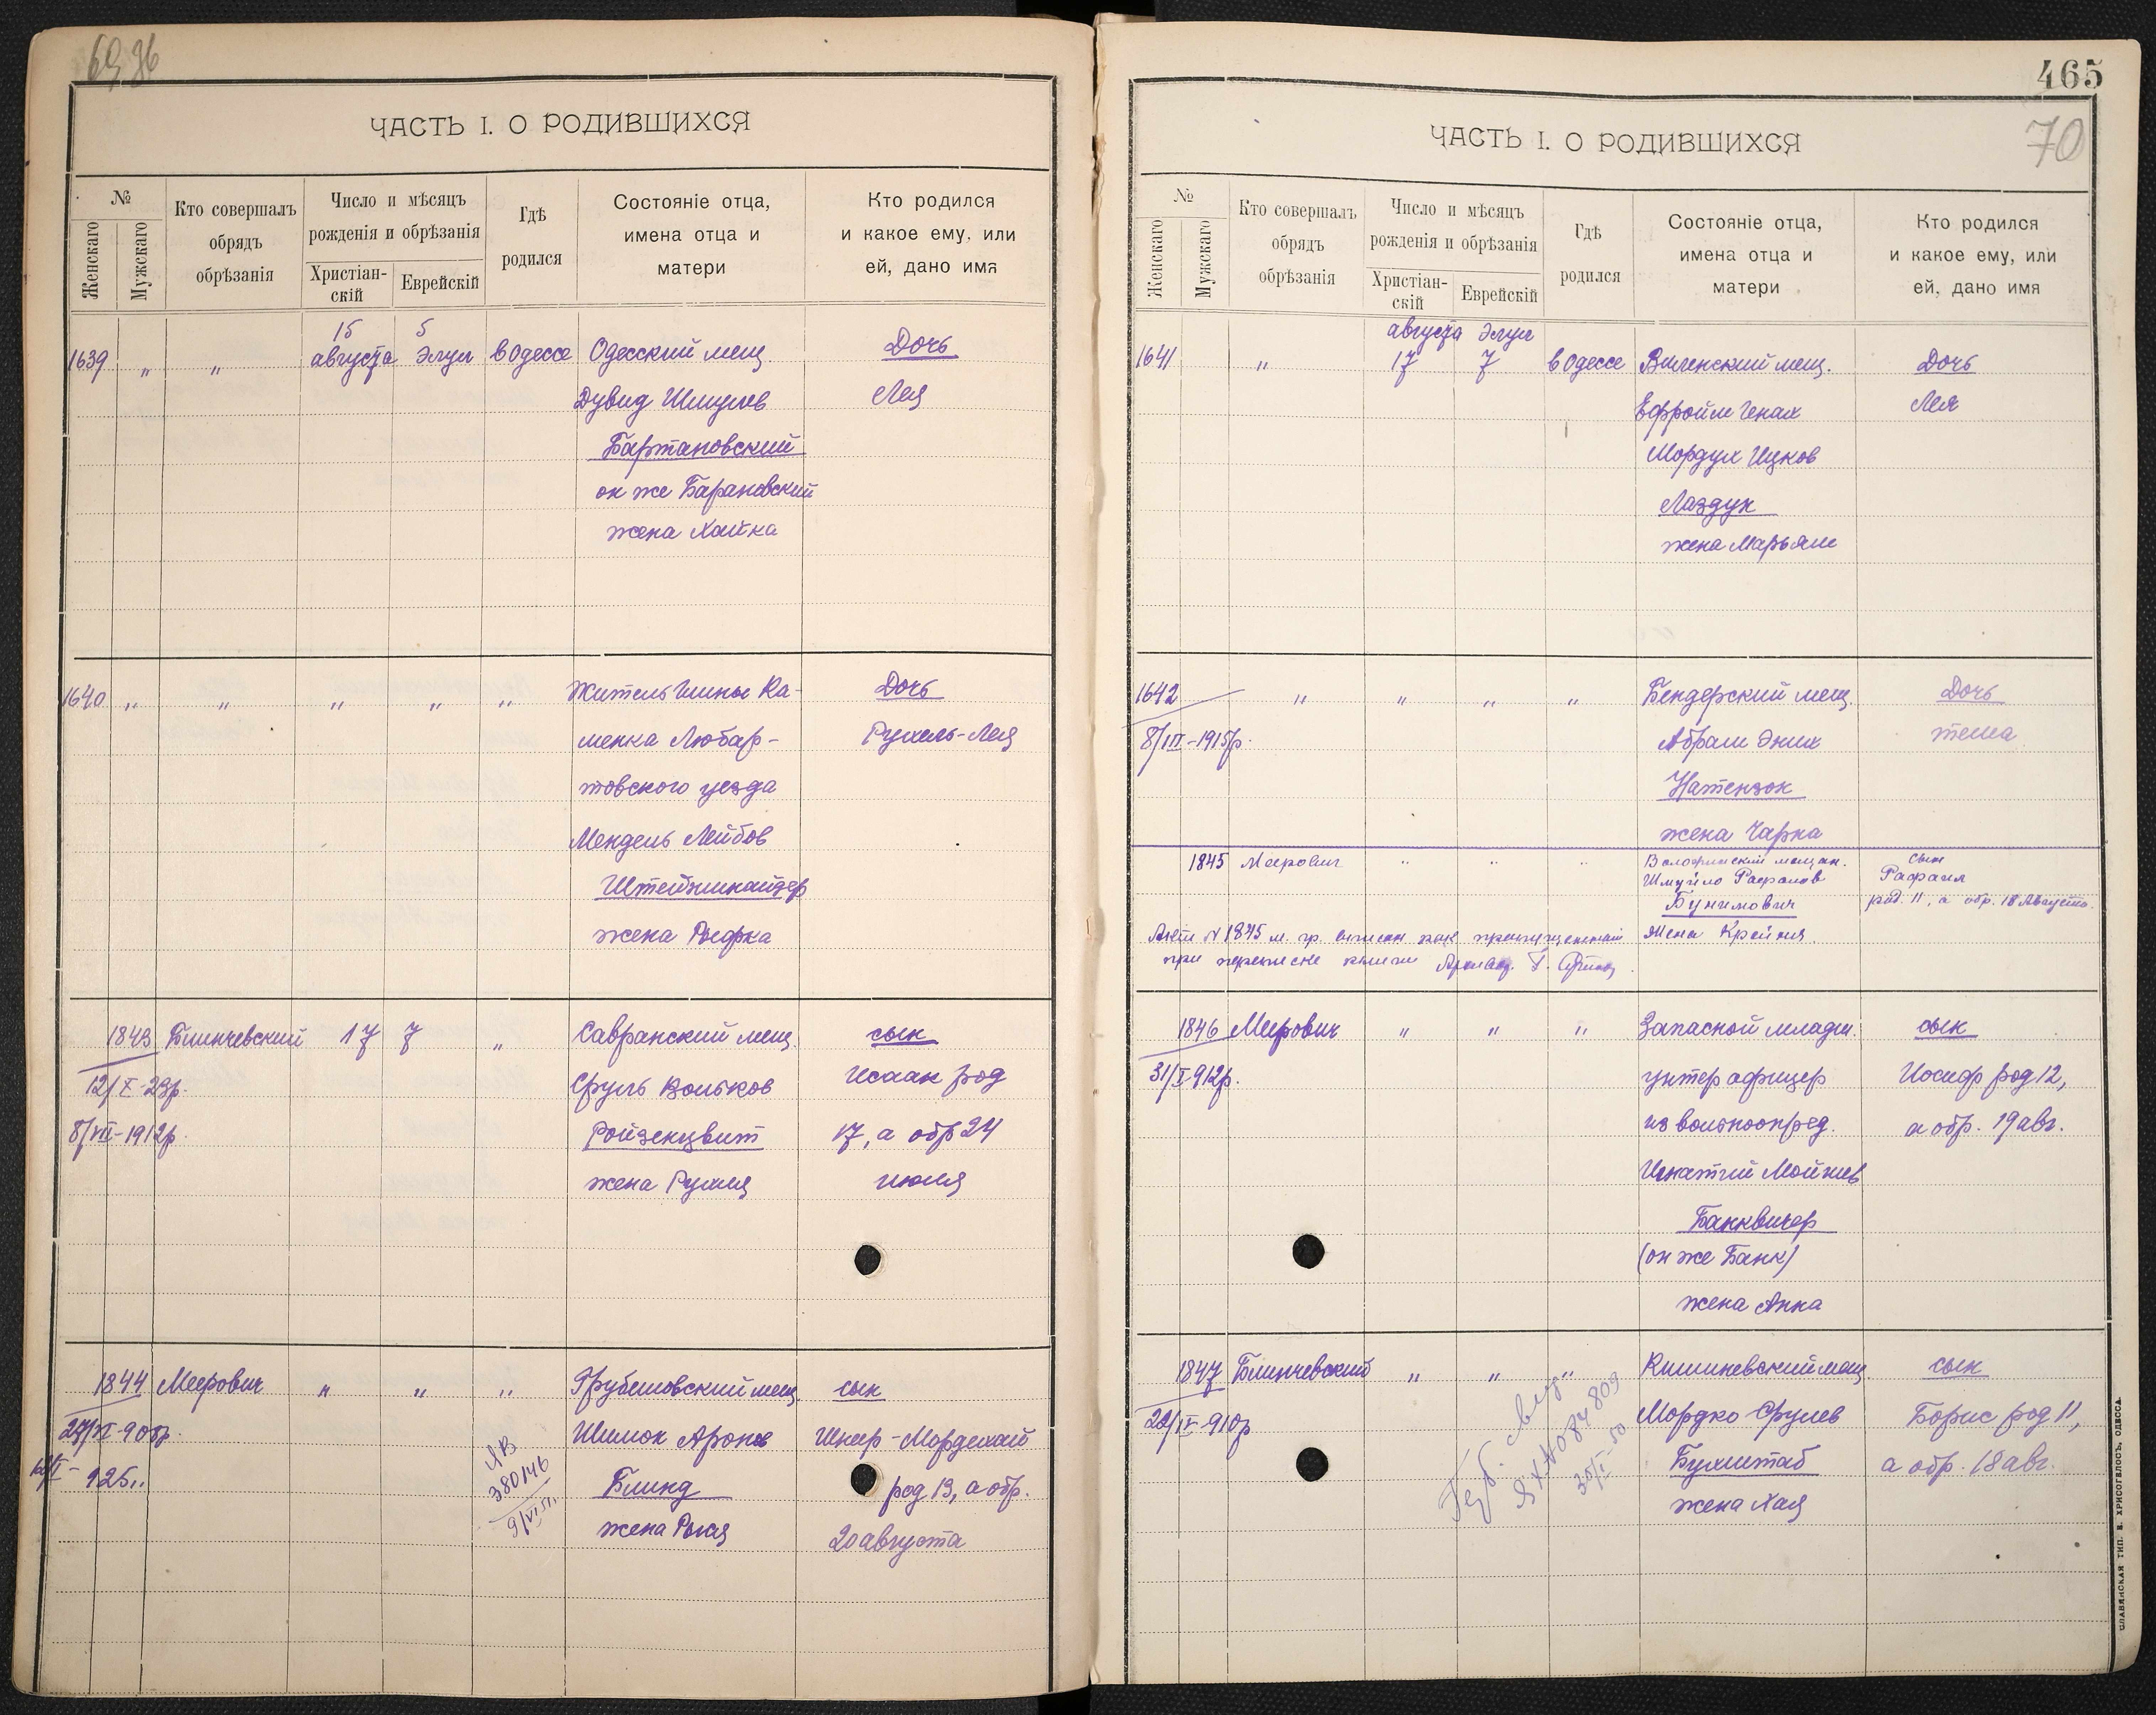 ЧАСТЬ I. О РОДИВШИХСЯ
№
Женскаго
Мужскаго
Кто совершалъ
обрядъ
обрѣзанія
Число и мѣсяцъ
рожденія и обрѣзанія
Христіан-
скій
Еврейскій
Гдѣ
родился
Состояніе отца,
имена отца и
матери
Кто родился
и какое ему, или
ей, дано имя
15 5
1639 " " августа Элул в Одессе Одесский мещ Дочь
Дувид Шмулев Лея
Бартановский
он же Барановский
жена Хайка
1640 " " " " " житель Гмины Ка- Дочь
менка Любар- Рухель-Лея
товского уезда
Мендель Лейбов
Штейншнайдер
жена Рыфка
1843 Блинчевский 17 7 " Савранский мещ. сын
12/X-23р. Сруль Вольков Исаак род
8/VII-1912р. Ройзенцвит 17, а обр 24
жена Рухля июля
1844 Меерович " " " Грубешовский мещ. сын
Шимон Аронов Шнеер-Мордехай
925..
380146
9/VI 51.
Блинд род 13, а обр.
20 августа
465
70
ЧАСТЬ I. О РОДИВШИХСЯ
№
Женскаго
Мужскаго
Кто совершалъ
обрядъ
обрѣзанія
Число и мѣсяцъ
рожденія и обрѣзанія
Христіан-
скій
Еврейскій
Гдѣ
родился
Состояніе отца,
имена отца и
матери
Кто родился
и какое ему, или
ей, дано имя
августа Элул
1641 " 17 7 в Одессе Виленский мещ. Дочь
Ефройм Генах Лея
Мордух Ицков
Лаздун
жена Марьям
1642 " " " " Бендерский мещ. Дочь
8/III-1915р. Абрам Эних тема
Натензон
жена Чарна
1845 Меерович " " " мещан. сын
Шмуйло Рафалов Рафаил
Бунимович род. 11, а обр. 18 Августа.
Акт № 1845 м. гр. вписан как пропущенный Жена Крейня.
при переписке книги
1846 Меерович " " " Запасной младш. сын
31/X-912р. унтер офицер Иосиф род 12,
из вольноопред. а обр. 19 авг.
Игнатий Мойшев
Банквицер
(он же Банк)
жена Анна
1847 Блинчевский " " " Кишиневский мещ. сын
Мордко Срулев Борис род 11,
Бухштаб а обр. 18 авг.
жена Хая
СЛАВЯНСКАЯ ТИП. Н. ХРИСОГЕЛОСЪ, ОДЕССА.